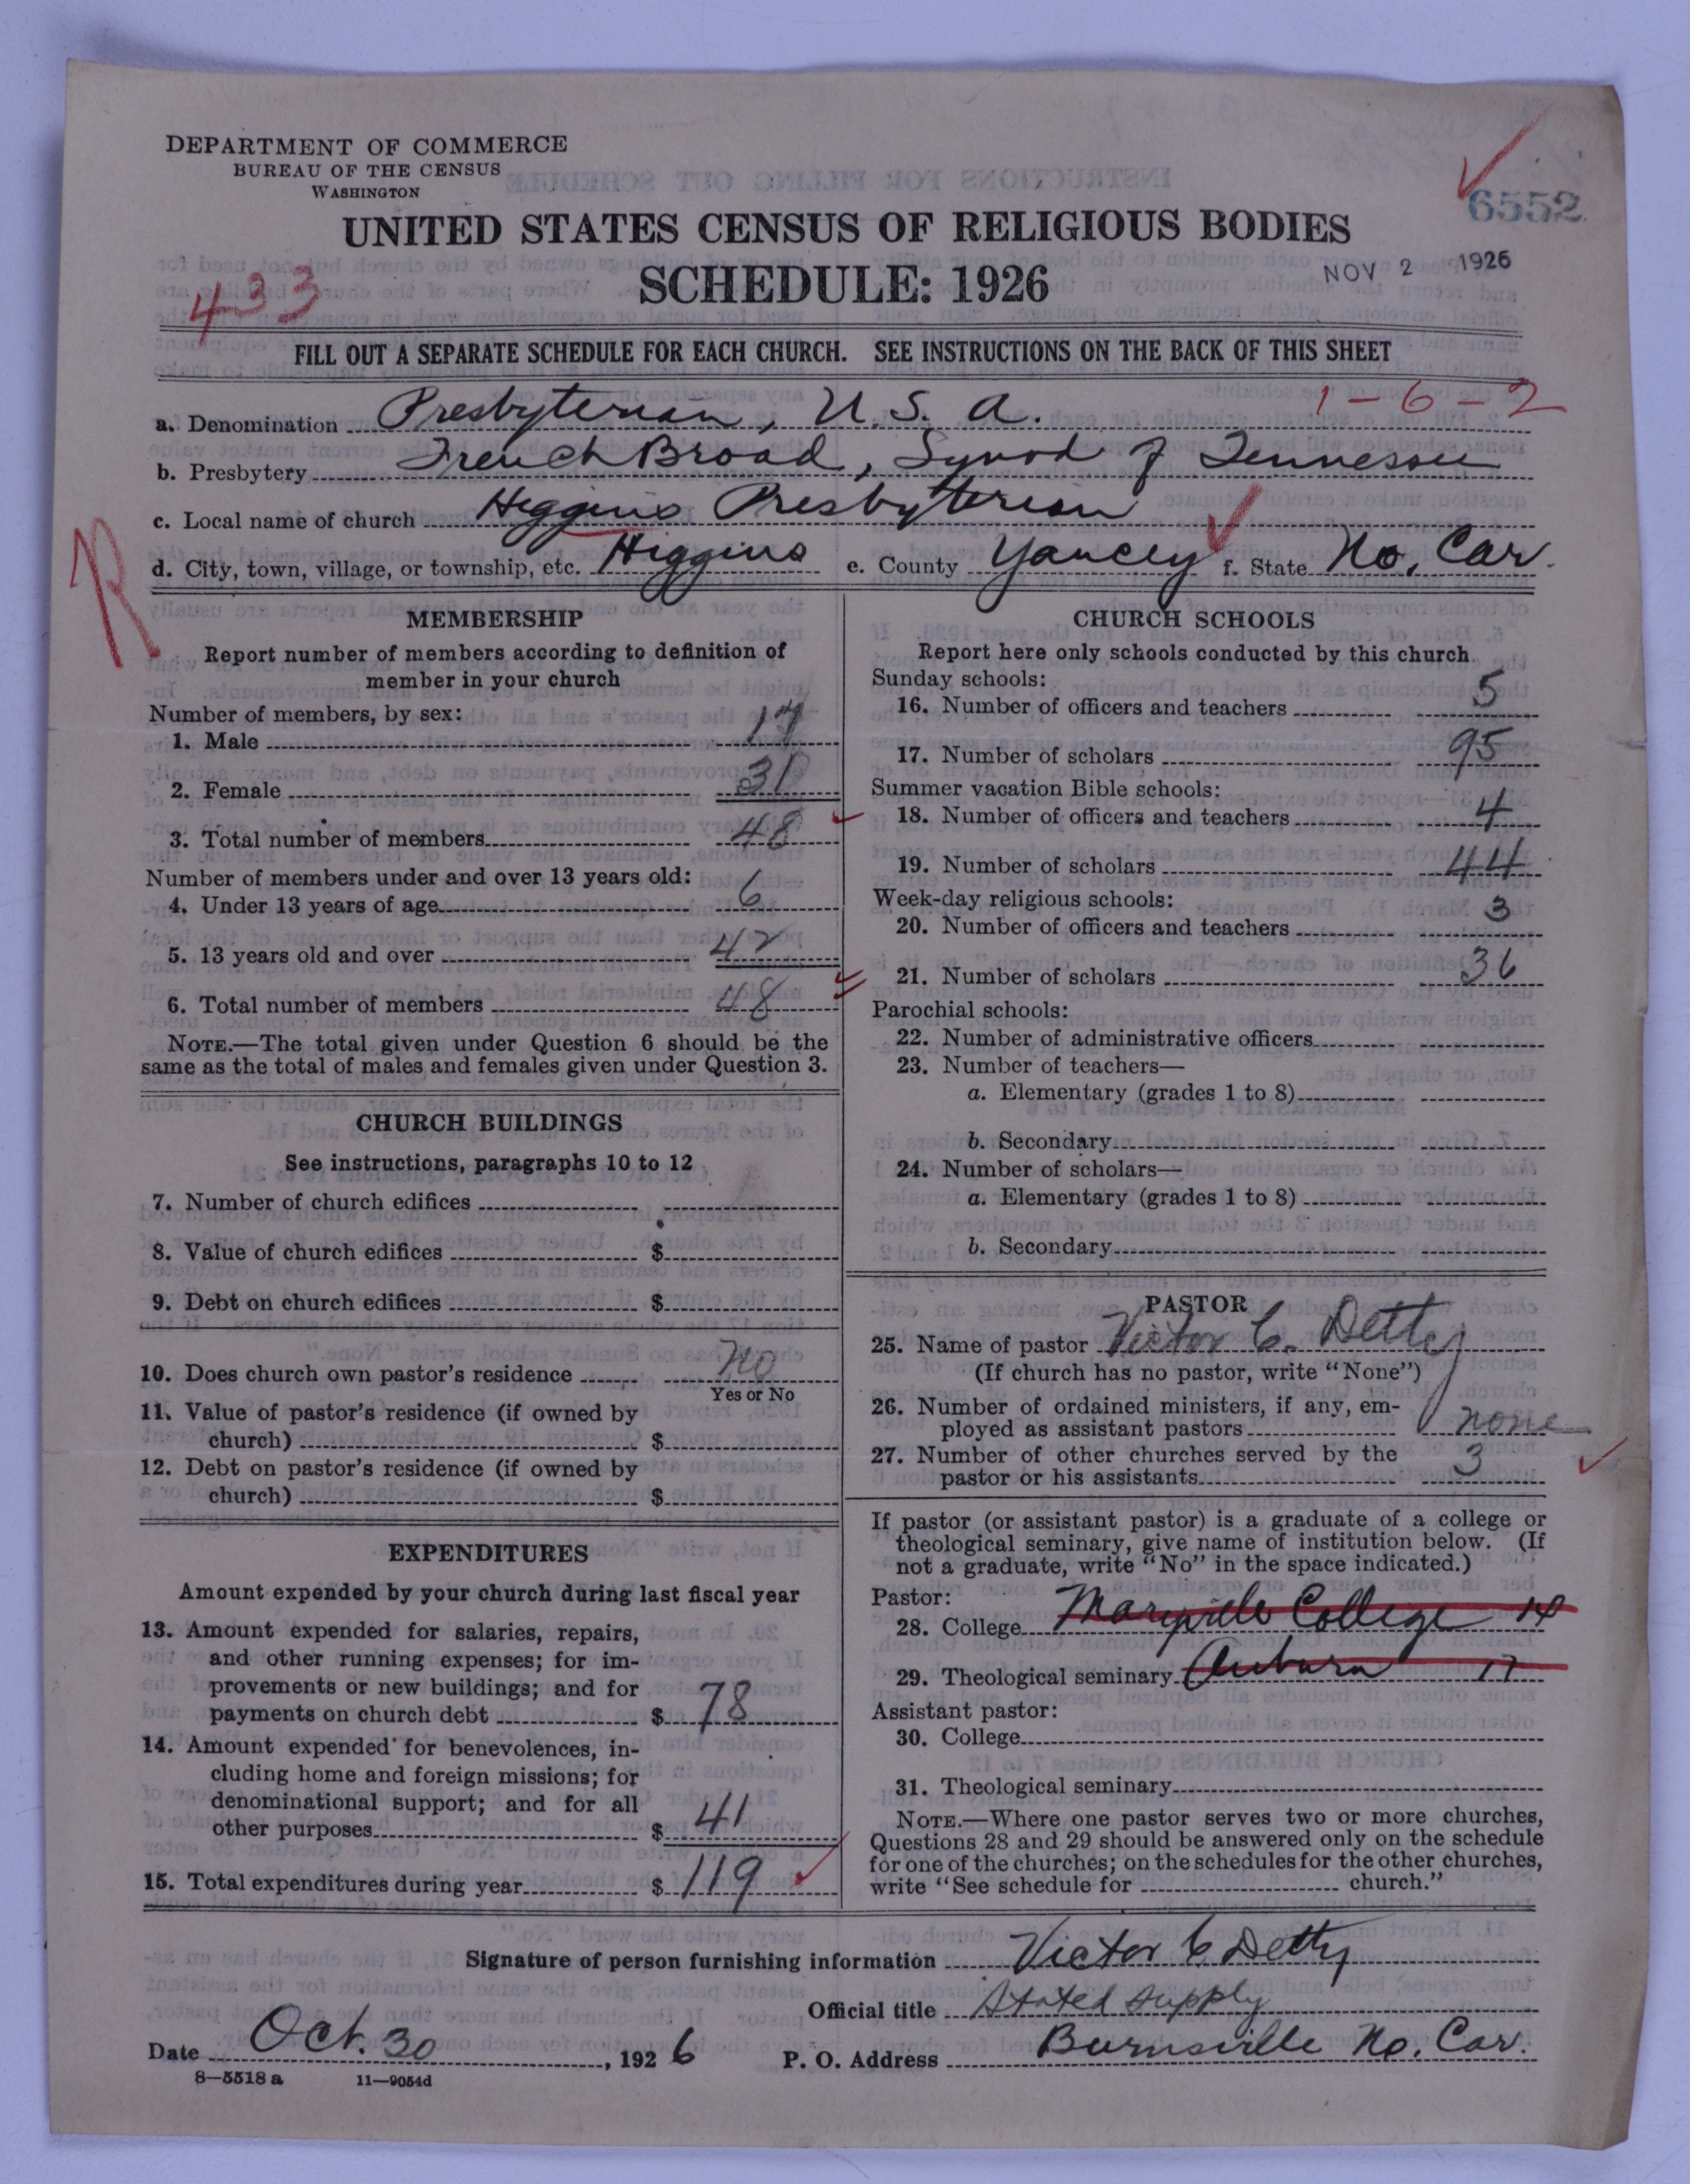 DEPARTMENT OF COMMERCE
BUREAU OF THE CENSUS
WASHINGTON
6552
UNITED STATES CENSUS OF RELIGIOUS BODIES
SCHEDULE: 1926
NOV 2 1926
433
FILL OUT A SEPARATE SCHEDULE FOR EACH CHURCH. SEE INSTRUCTIONS ON THE BACK OF THIS SHEET
1-6-2
a. Denomination Presbyterian, U.S.A.
b. Presbytery French Broad, Synod of Tennessee
c. Local name of church Higgins Presbyterian
d. City, town, village, or township, etc. Higgins e. County Yancey f. State No. Car.
R
MEMBERSHIP
Report number of members according to definition of
member in your church
Number of members, by sex:
1. Male 17
2. Female 31
3. Total number of members 48
Number of members under and over 13 years old:
4. Under 13 years of age 6
5. 13 years old and over 42
6. Total number of members 48
NOTE.—The total given under Question 6 should be the
same as the total of males and females given under Question 3.
CHURCH BUILDINGS
See instructions, paragraphs 10 to 12
7. Number of church edifices
8. Value of church edifices $
9. Debt on church edifices $
10. Does church own pastor's residence No
Yes or No
11. Value of pastor's residence (if owned by
church) $
12. Debt on pastor's residence (if owned by
church) $
EXPENDITURES
Amount expended by your church during last fiscal year
13. Amount expended for salaries, repairs,
and other running expenses; for im-
provements or new buildings; and for
payments on church debt $ 78
14. Amount expended for benevolences, in-
cluding home and foreign missions; for
denominational support; and for all
other purposes $ 41
15. Total expenditures during year $ 119
CHURCH SCHOOLS
Report here only schools conducted by this church
Sunday schools:
16. Number of officers and teachers 5
17. Number of scholars 95
Summer vacation Bible schools:
18. Number of officers and teachers 4
19. Number of scholars 44
Week-day religious schools:
20. Number of officers and teachers 3
21. Number of scholars 36
Parochial schools:
22. Number of administrative officers
23. Number of teachers—
a. Elementary (grades 1 to 8)
b. Secondary
24. Number of scholars—
a. Elementary (grades 1 to 8)
b. Secondary
PASTOR
25. Name of pastor Victor C. Detty
(If church has no pastor, write "None")
26. Number of ordained ministers, if any, em-
ployed as assistant pastors none
27. Number of other churches served by the
pastor or his assistants 3
If pastor (or assistant pastor) is a graduate of a college or
theological seminary, give name of institution below. (If
not a graduate, write "No" in the space indicated.)
Pastor:
28. College Maryville College 14
29. Theological seminary Auburn 17
Assistant pastor:
30. College
31. Theological seminary
NOTE.—Where one pastor serves two or more churches,
Questions 28 and 29 should be answered only on the schedule
for one of the churches; on the schedules for the other churches,
write "See schedule for church."
Signature of person furnishing information Victor C Detty
Official title Stated supply
Date Oct. 30, 1926 P. O. Address Burnsville No. Car.
8—5518 a 11—9054d